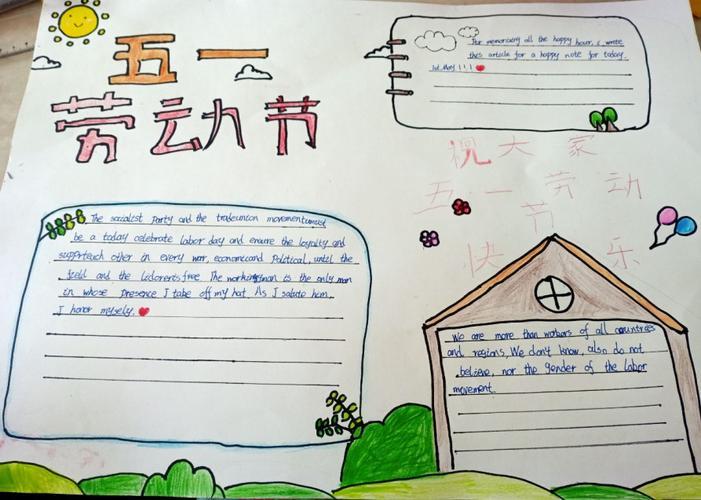 五一
劳动节
For memorizing all the happy hour, i write
this article for a happy note for today
1st May!!!
祝大家
五一劳动
节
快乐
The socialist party and the tradeunion movementumust
be a today celebrate labor day and ensure the loyalty and
supprteach other in every war, economicand political, until the
field and the lidorerisfree. The workingman is the only man
in whose presence I take off my hat. As I salute him,
I honor mysely.
We are more than workers of all countries
and regions, We don't know, also do not
believe, nor the gender of the labor
movement.